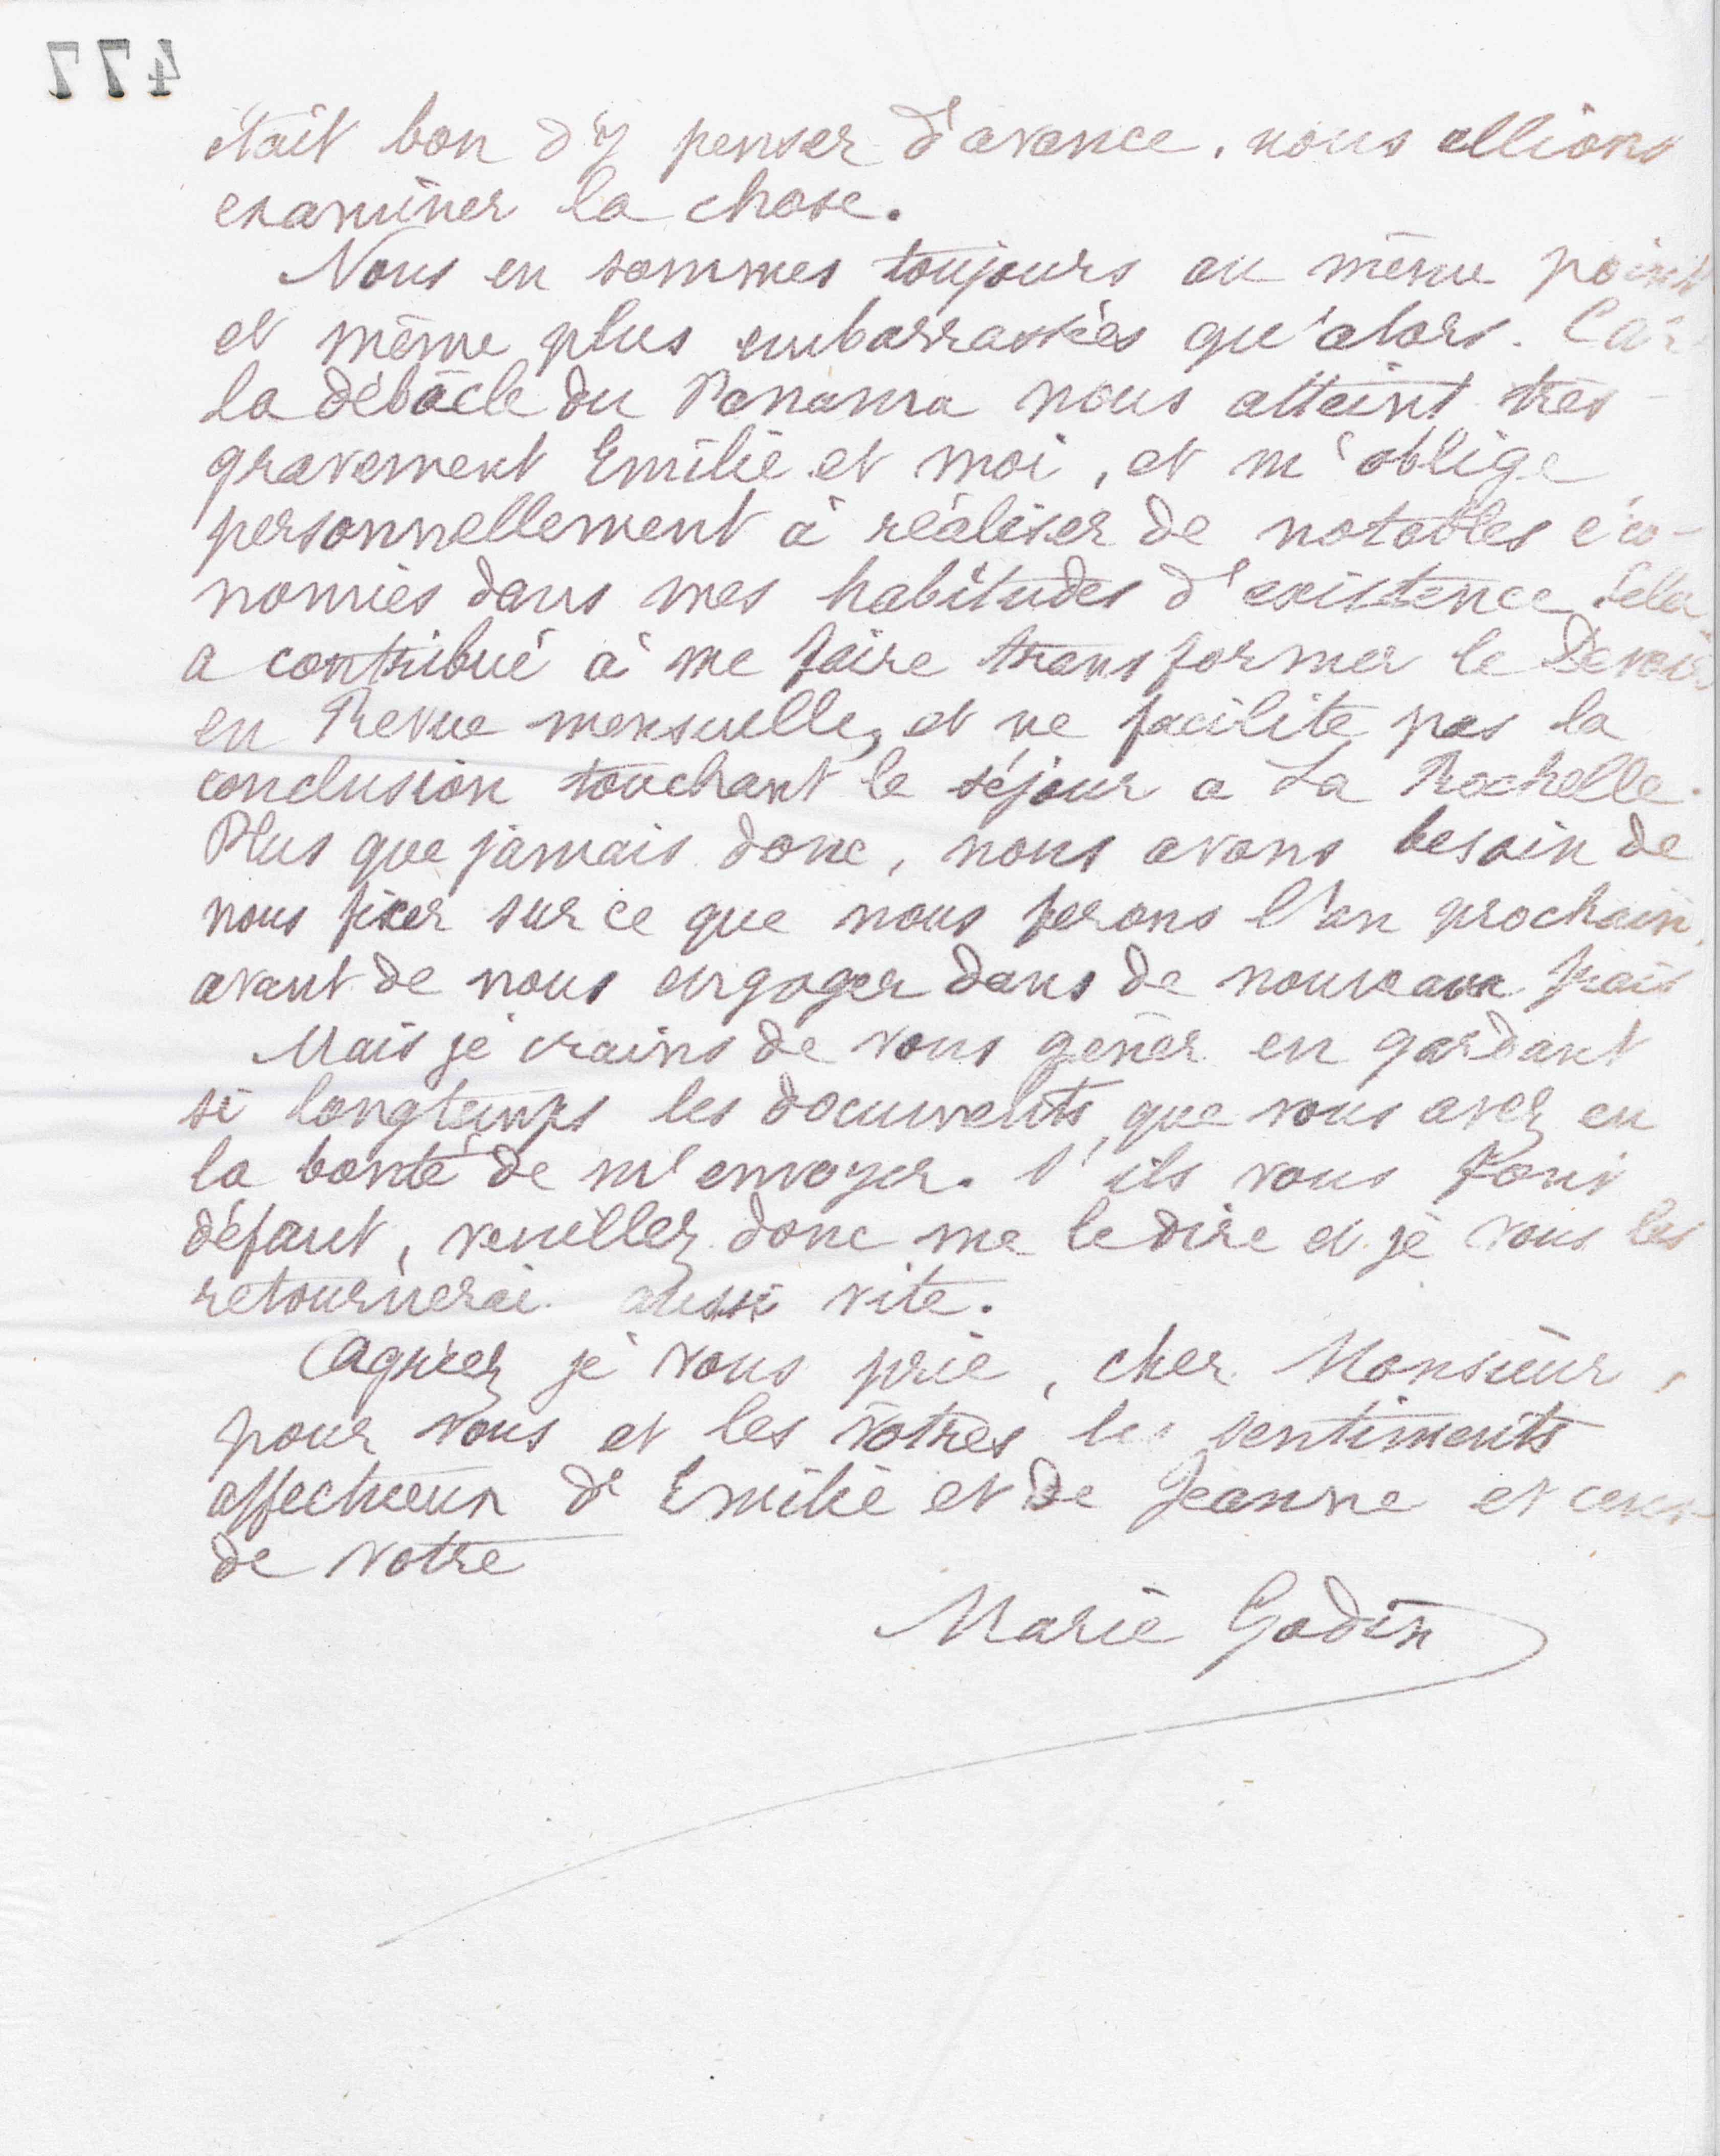 477
était bon d'y penser d'avance, nous allions
examiner la chose.
Nous en sommes toujours au même point
et même plus embarrassées qu'alors. Car
la débâcle du Panama nous atteint très
gravement Emilie et moi, et m'oblige
personnellement à réaliser de notables éco-
nomies dans mes habitudes d'existence. Cela
a contribué à me faire transformer le Devoir
en Revue mensuelle, et ne facilite pas la
conclusion touchant le séjour a La Rochelle.
Plus que jamais donc, nous avons besoin de
nous fixer sur ce que nous ferons l'an prochain,
avant de nous engager dans de nouveaux frais
Mais je crains de vous gêner en gardant
si longtemps les documents que vous avez eu
la bonté de m'envoyer. S'ils vous font
défaut, veuillez donc me le dire et je vous les
retournerai aussi vite.
Agréez je vous prie, cher Monsieur,
pour vous et les vôtres les sentiments
affectueux d'Emilie et de Jeanne et ceux
de votre
Marie Godin